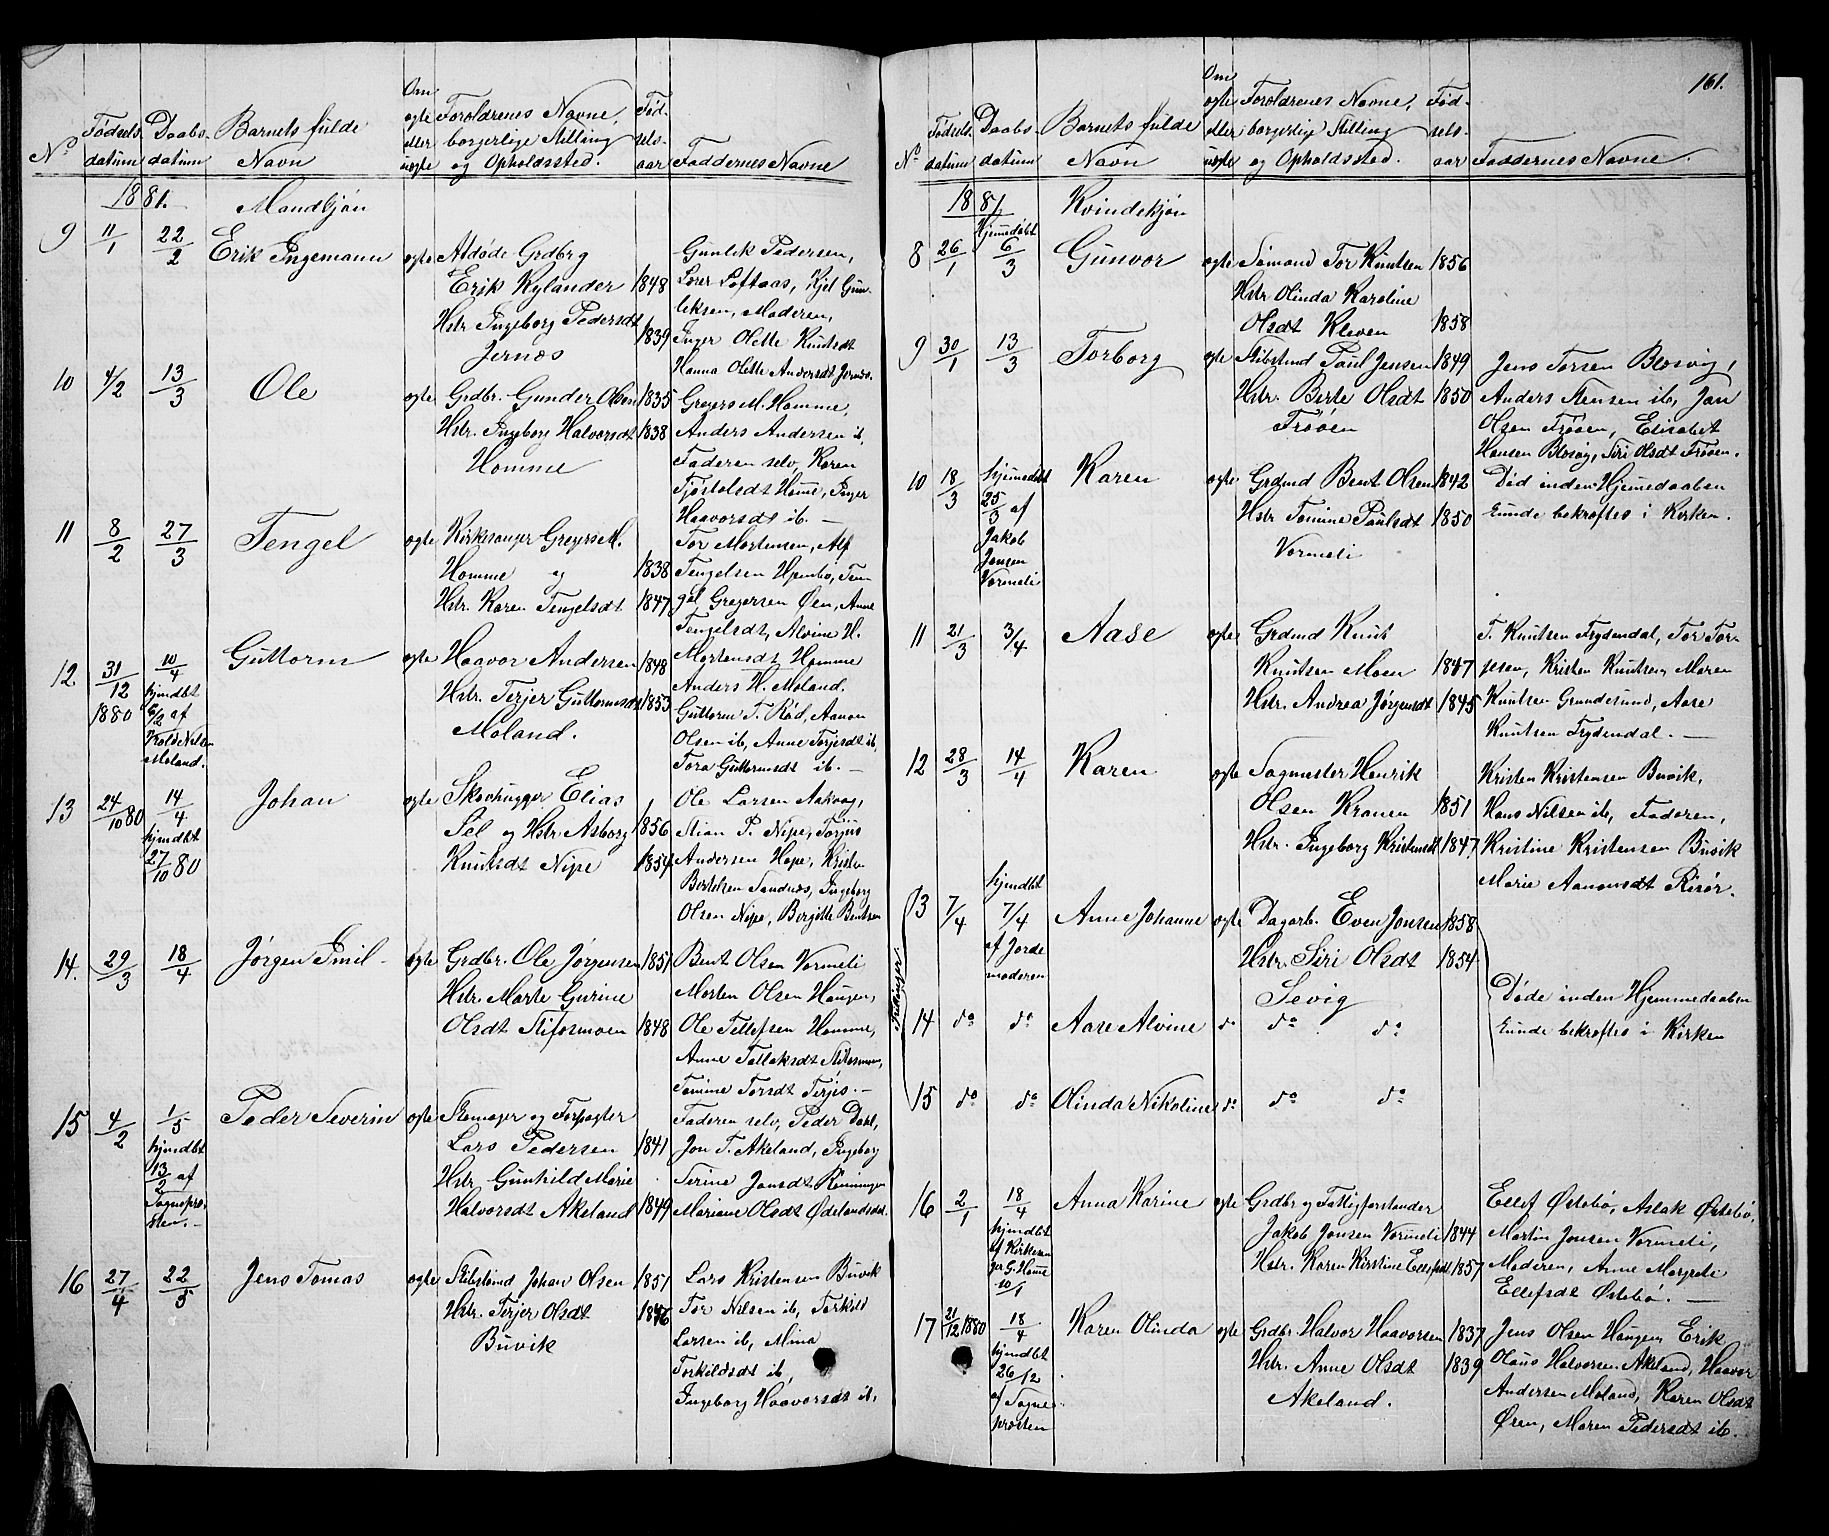 No
Fødsels-
datum
Daabs-
datum
Barnets fulde
Navn
Om
ægte
eller
uægte
Forældrenes Navne,
borgerlige Stilling
og Opholdssted.
Fød-
sels-
aar
Faddernes Navne
1881. Mandkjøn
9 11/1 22/2 Erik Ingemann ægte
Afdøde Grdbrg
Erik Rylander 1848
Hstr Ingeborg Pedersdt 1839
Jernæs
Gunlek Pedersen,
Løftaas, Kjel Gun-
leksen, Moderen,
Inger Olette Knutsdt
Hanna Olette Andersdt Jernæs.
10 4/2 13/3 Ole ægte
Grdbr. Gunder Olsen 1835
Hstr. Ingeborg Halvorsdt 1838
Homme
Greyers M. Homme,
Anders Andersen ib,
Faderen selv, Karen
Tjøstolsdt Home, Inger
Haavorsdt ib. —
11 8/2 27/3 Tengel ægte
Kirkesanger Greyers M.
Homme og 1838
Hstr. Karen Tengelsdt 1847
Tor Mortensen, Alf
Tengelsen Hjembø, Ten
gel Gregersen Øen, Anne
Tengelsdt, Alvine H.
Mortensdt Homme
12 31/12 1880 10/4
hjmdbt
6/2 af
Nilsen
Moland.
Guttorm ægte
Haavor Andersen 1848
Hstr. Terjer Guttormsdt 1853
Moland.
Anders H. Moland.
Guttorm T. Rød, Aanon
Olsen ib, Anne Terjesdt ib,
Tora Guttormsdt ib. —
13 24/10 80 14/4
hjmdbt
27/10 80
Johan ægte
Skovhugger Elias
Sel og Hstr. Asborg 1856
Knutsdt Nipe 1854
Ole Larsen Aakvag,
Stian P. Nipe, Torjus
Andersen Hope, Kristen
Bertelsen Sandnæs, Ingeborg
Olsen Nipe, Bergitte Bentsen
14. 29/3 18/4 Jørgen Emil - ægte
Grdbr. Ole Jørgensen 1851
Hstr. Marte Gurine
Olsdt Stifosmoen 1848
Bent Olsen Vormeli
Morten Olsen Haugen,
Ole Tellefsen Homme,
Anne Tallaksdt Stifosmoen,
Tomine Torsdt Terjes. —
15 4/2 1/5
hjmdbt
13/2 af
Sognepre-
sten. —
Peder Severin ægte
Skomager og Forpagter
Lars Pedersen 1841
Hstr Gunhild Marie
Halvorsdt Akeland 1849
Faderen selv, Peder Dahl,
Jon T. Akeland, Ingeborg
Serine Jonsdt Rønningen
Mariane Olsdt Ødelandsdal.
16 27/4 22/5 Jens Tomas ægte
Skibstømd Johan Olsen 1851
Hstr. Terjer Olsdt 1846
Buvik
Lars Kristensen Buvik
Tor Nilsen ib, Torkild
Larsen ib, Mina
Torkildsdt ib,
Ingeborg Haavorsdt ib,
161.
No
Fødsels-
datum
Daabs-
datum
Barnets fulde
Navn
Om
ægte
eller
uægte
Forældrenes Navne,
borgerlige Stilling
og Opholdssted.
Fød-
sels-
aar
Faddernes Navne.
1881 Kvindekjøn
8 26/1
Hjemedøbt
6/3 Gunvor ægte
Sømand Tor Knutsen 1856
Hstr Olinda Karoline
Olsdt Kleven 1858
9 30/1 13/3 Torborg ægte
Skibstmd Paul Jensen 1849
Hstr. Berte Olsdt 1850
Frøøen
Jens Torsen Blosvig,
Anders Stensen ib, Jan
Olsen Frøøen, Elisabet
Hansen Blosvig, Siri Olsdt Frøøen.
10 18/3
hjemedøbt
25/3 af
Jakob
Jonsen
Vormeli
Karen ægte
Grdmd Bent Olsen 1842
Hstr Tomine Paulsdt 1850
Vormeli
Død inden Hjemedaaben
kunde bekræftes i Kirken.
11 21/3 3/4 Aase ægte
Grdmd Knut
Knutsen Moen 1847
Hstr. Andrea Jørgensdt 1845
T. Knutsen Frydendal, Tor Tor-
jesen, Kristen Knutsen, Maren
Knutsen Grundesund, Aase
Knutsen Frydendal. —
12 28/3 14/4 Karen ægte
Sagmester Henrik
Olsen Kranen 1851
Hstr. Ingeborg Kristensdt 1847
Kristen Kristensen Buvik,
Hans Nilsen ib, Faderen,
Kristine Kristensen Buvik
Marie Aanonsdt Risør.
Trillinger
13 7/4
hjmdbt
7/4
af Jorde
moderen
Anne Johanne ægte
Dagarb. Even Jonsen 1858
Hstr. Siri Olsdt 1854
Sevig
Døde inden Hjemmedaaben
kunde bekræftes i Kirken
14 do do Aase Alvine do do do
15 do do Olinda Nikoline do do do
16 2/1 18/4
hjmdbt
af Kirkesan
ger G. Home
10/1
Anna Karine ægte
Grdbr og Fattigforstander
Jakob Jonsen Vormeli 1844
Hstr. Karen Kirstine Ellefsdt 1857
Ellef Østebø, Aslak Østebø,
Martin Jonsen Vormeli,
Moderen, Anne Margrete
Ellefsdt Østebø. —
17 21/12 1880 18/4
hjmdbt
26/12
af Sogne-
præsten
Karen Olinda ægte
Grdbr. Halvor Haavorsen 1837
Hstr. Anne Olsdt 1839
Akeland.
Jens Olsen Haugen, Erik
Olaus Halvorsen Akeland, Haavor
Andersen Moland, Karen Olsdt
Øren, Maren Pedersdt ib.